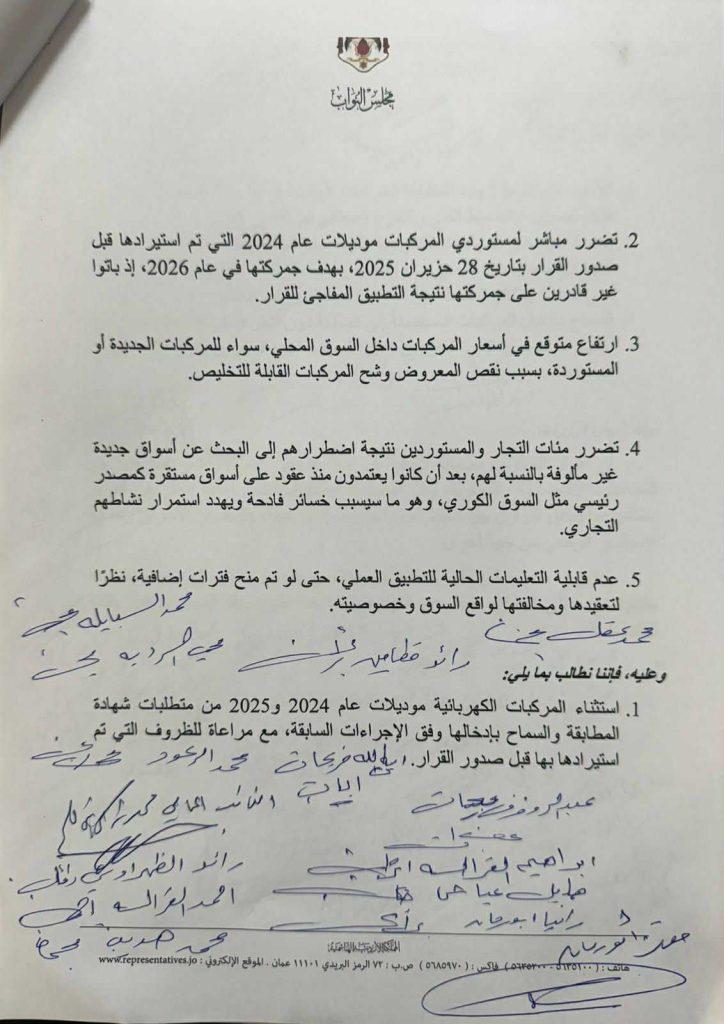 مجلس النواب
2. تضرر مباشر لمستوردي المركبات موديلات عام 2024 التي تم استيرادها قبل
صدور القرار بتاريخ 28 حزيران 2025، بهدف جمركتها في عام 2026، إذ باتوا
غير قادرين على جمركتها نتيجة التطبيق المفاجئ للقرار.
3. ارتفاع متوقع في أسعار المركبات داخل السوق المحلي، سواء للمركبات الجديدة أو
المستوردة، بسبب نقص المعروض وشح المركبات القابلة للتخليص.
4. تضرر مئات التجار والمستوردين نتيجة اضطرارهم إلى البحث عن أسواق جديدة
غير مألوفة بالنسبة لهم، بعد أن كانوا يعتمدون منذ عقود على أسواق مستقرة كمصدر
رئيسي مثل السوق الكوري، وهو ما سيسبب خسائر فادحة ويهدد استمرار نشاطهم
التجاري.
5. عدم قابلية التعليمات الحالية للتطبيق العملي، حتى لو تم منح فترات إضافية، نظرًا
لتعقيدها ومخالفتها لواقع السوق وخصوصيته.
محمد السبايله
محمد عقل
رائد قطامين
وعليه، فإننا نطالب بما يلي:
1. استثناء المركبات الكهربائية موديلات عام 2024 و2025 من متطلبات شهادة
المطابقة والسماح بإدخالها وفق الإجراءات السابقة، مع مراعاة للظروف التي تم
استيرادها بها قبل صدور القرار.
محمد الرعود
ابراهيم القرالسه
رائد الظهراوي
هايل عياش
احمد القرالسه
رانيا ابورمان
محمد
المملكة الأردنية الهاشمية
هاتف : ( ٥٦٣٥١٠٠ - ٥٦٣٥٢٠٠ ) فاكس : ( ٥٦٨٥٩٧٠ ) ص.ب : ٧٢ الرمز البريدي ١١١٠١ عمان . الموقع الإلكتروني : www.representatives.jo